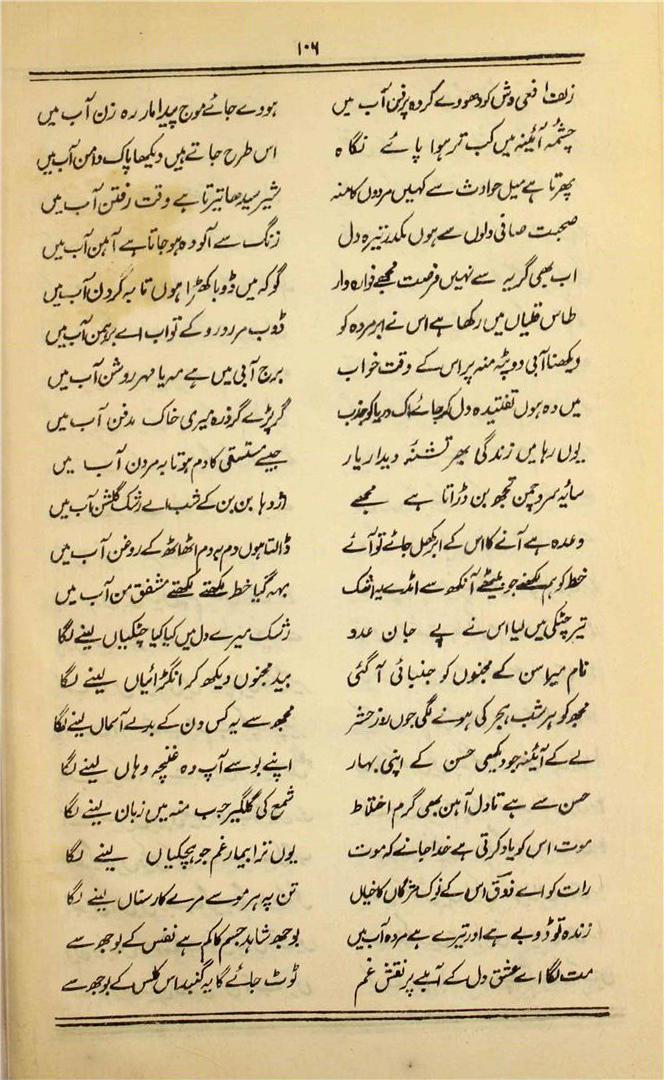 ۱۰۶
زلف افعی وش کو دھووے گر وہ پرفن آب میں ہووے جائے موج پیدا مار رہ زن آب میں
چشمہ آئینہ میں کب تر ہوا پائے نگاہ اس طرح جاتے ہیں دیکھا پاک دامن آب میں
پھرتا ہے میل حوادث سے کہیں مردوں کا منہ شیر سیدھا تیرتا ہے وقت رفتن آب میں
صحبت صافی دلوں سے ہوں مکدر تیرہ دل زنگ سے آلودہ ہو جاتا ہے آہن آب میں
اب بھی گریہ سے نہیں فرصت مجھے فوارہ وار گو کہ میں ڈوبا کھڑا ہوں تا بہ گردن آب میں
طاس قلیاں میں رکھا ہے اس نے ابر مردہ کو ڈوب مر رو رو کے تو اب اے برہمن آب میں
دیکھنا آبی دوپٹہ منہ پر اس کے وقت خواب برج آبی میں ہے مہ یا مہر روشن آب میں
میں وہ ہوں تفتیدہ دل کہ جائے اک دریا کو جذب گر پڑے گر ذرہ میری خاک مدفن آب میں
یوں رہا میں زندگی بھر تشنۂ دیدار یار جیسے مستسقی کا دم ہوتا بہ مردن آب میں
سایہ سرو چمن تجھ بن ڈراتا ہے مجھے اژدہا بن بن کے شب اے رشک گلشن آب میں
وعدہ ہے آنے کا اس کے ابر کھل جائے تو آئے ڈالتا ہوں دم بدم اٹھ اٹھ کے روغن آب میں
خط کو ہم لکھنے جو بیٹھے آنکھ سے امڈے یہ اشک بہہ گیا خط لکھتے لکھتے مشفق من آب میں
تیر چٹکی میں لیا اس نے پے جان عدو رشک میرے دل میں کیا کیا چٹکیاں لینے لگا
نام میرا سن کے مجنوں کو جنبائی آ گئی بید مجنوں دیکھ کر انگڑائیاں لینے لگا
مجھ کو ہر شب ہجر کی ہونے لگی جوں روز حشر مجھ سے یہ کس دن کے بدلے آسماں لینے لگا
لے کے آئینہ جو دیکھی حسن کے اپنی بہار اپنے بوسے آپ وہ غنچہ دہاں لینے لگا
حسن سے ہے تا دل آہن بھی گرم اختلاط شمع کی گلگیر جب منہ میں زبان لینے لگا
موت اس کو یاد کرتی ہے خدا جانے کہ موت یوں ترا بیمار غم جو ہچکیاں لینے لگا
رات کو اے ذوق اس کے نوک مژگاں کا خیال تن پہ ہر مو سے مرے کار سناں لینے لگا
زندہ تو ڈوبے ہے اور تیرے ہے مردہ آب میں بوجھ شاہد جسم کا کم ہے نفس کے بوجھ سے
مت لگا اے عشق دل کے آبلے پر نقش غم ٹوٹ جائے گا یہ گنبد اس کلس کے بوجھ سے